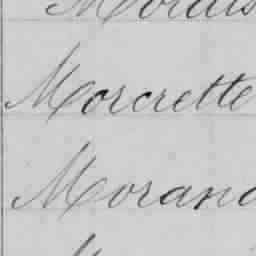 Morcrette
Morand